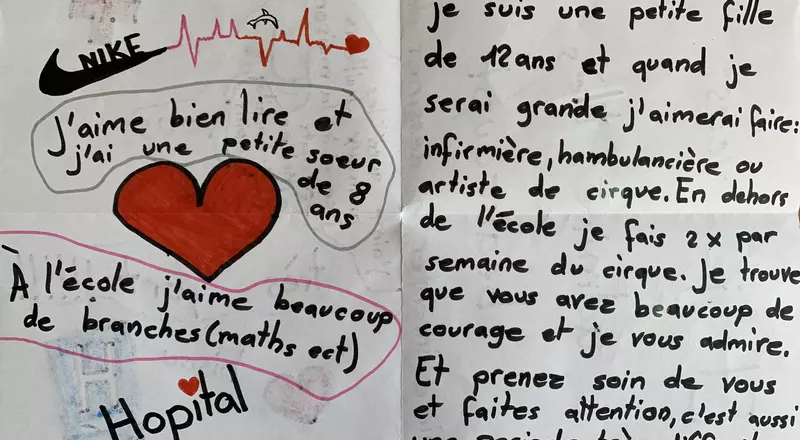 NIKE
J'aime bien lire et
j'ai une petite soeur
de 8
ans
À l'école j'aime beaucoup
de branches (maths ect)
Hopital
je suis une petite fille
de 12 ans et quand je
serai grande j'aimerai faire:
infirmière, hambulancière ou
artiste de cirque. En dehors
de l'école je fais 2 x par
semaine du cirque. Je trouve
que vous avez beaucoup de
courage et je vous admire.
Et prenez soin de vous
et faites attention, c'est aussi